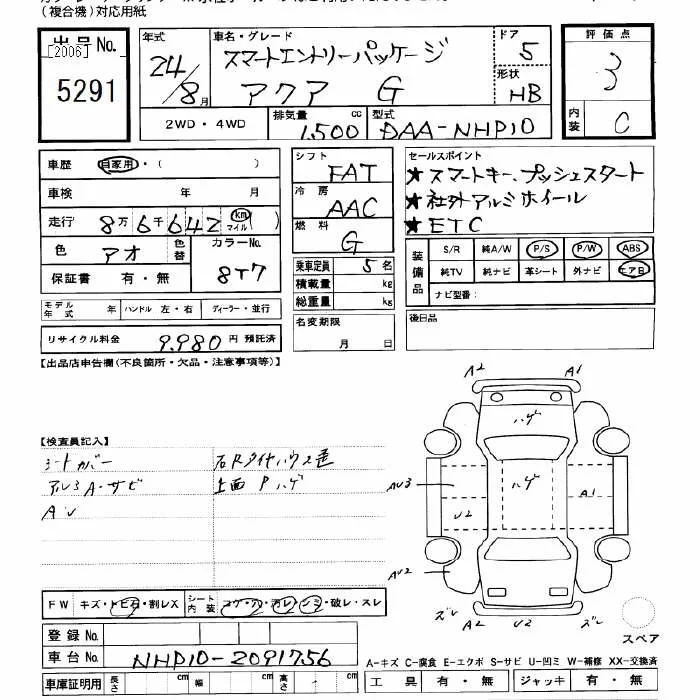 (複合機)対応用紙
出品No.
[2006]
5291
年式
24/8月
車名・グレード
スマートエントリーパッケージ
アクア G
ドア
5
形状
HB
評価点
3
内装
C
2WD・4WD
排気量
1,500 cc
型式
DAA-NHP10
車歴 自家用・( )
車検 年 月
走行 8万6千642 km マイル ( )
色 アオ 色替 カラーNo. 8T7
保証書 有・無
シフト
FAT
冷房
AAC
燃料
G
乗車定員 5名
積載量 kg
総重量 kg
セールスポイント
★スマートキー、プッシュスタート
★社外アルミホイール
★ETC
装備品
S/R 純A/W P/S P/W ABS
純TV 純ナビ 革シート 外ナビ エアB
ナビ型番:
モデル年式 年 ハンドル 左・右 ディーラー・並行
リサイクル料金 9,980円 預託済
名変期限
月 日
後日品
【出品店申告欄(不良箇所・欠品・注意事項等)】
【検査員記入】
シートカバー
アルミA・サビ
AU
右Rタイヤハウス色
上面Pハゲ
A2 A1
ハゲ
ハゲ
AU3
U2
A1
AU2
ズレ A2 U2 ズレ
スペア
FW キズ・トビ石・割レX シート内装 コゲ・穴・汚レ・シミ・破レ・スレ
登録No.
車台No. NHP10-2091756
車庫証明用 長さ cm 幅 cm 高さ cm
A-キズ C-腐食 E-エクボ S-サビ U-凹ミ W-補修 XX-交換済
工具 有・無 ジャッキ 有・無